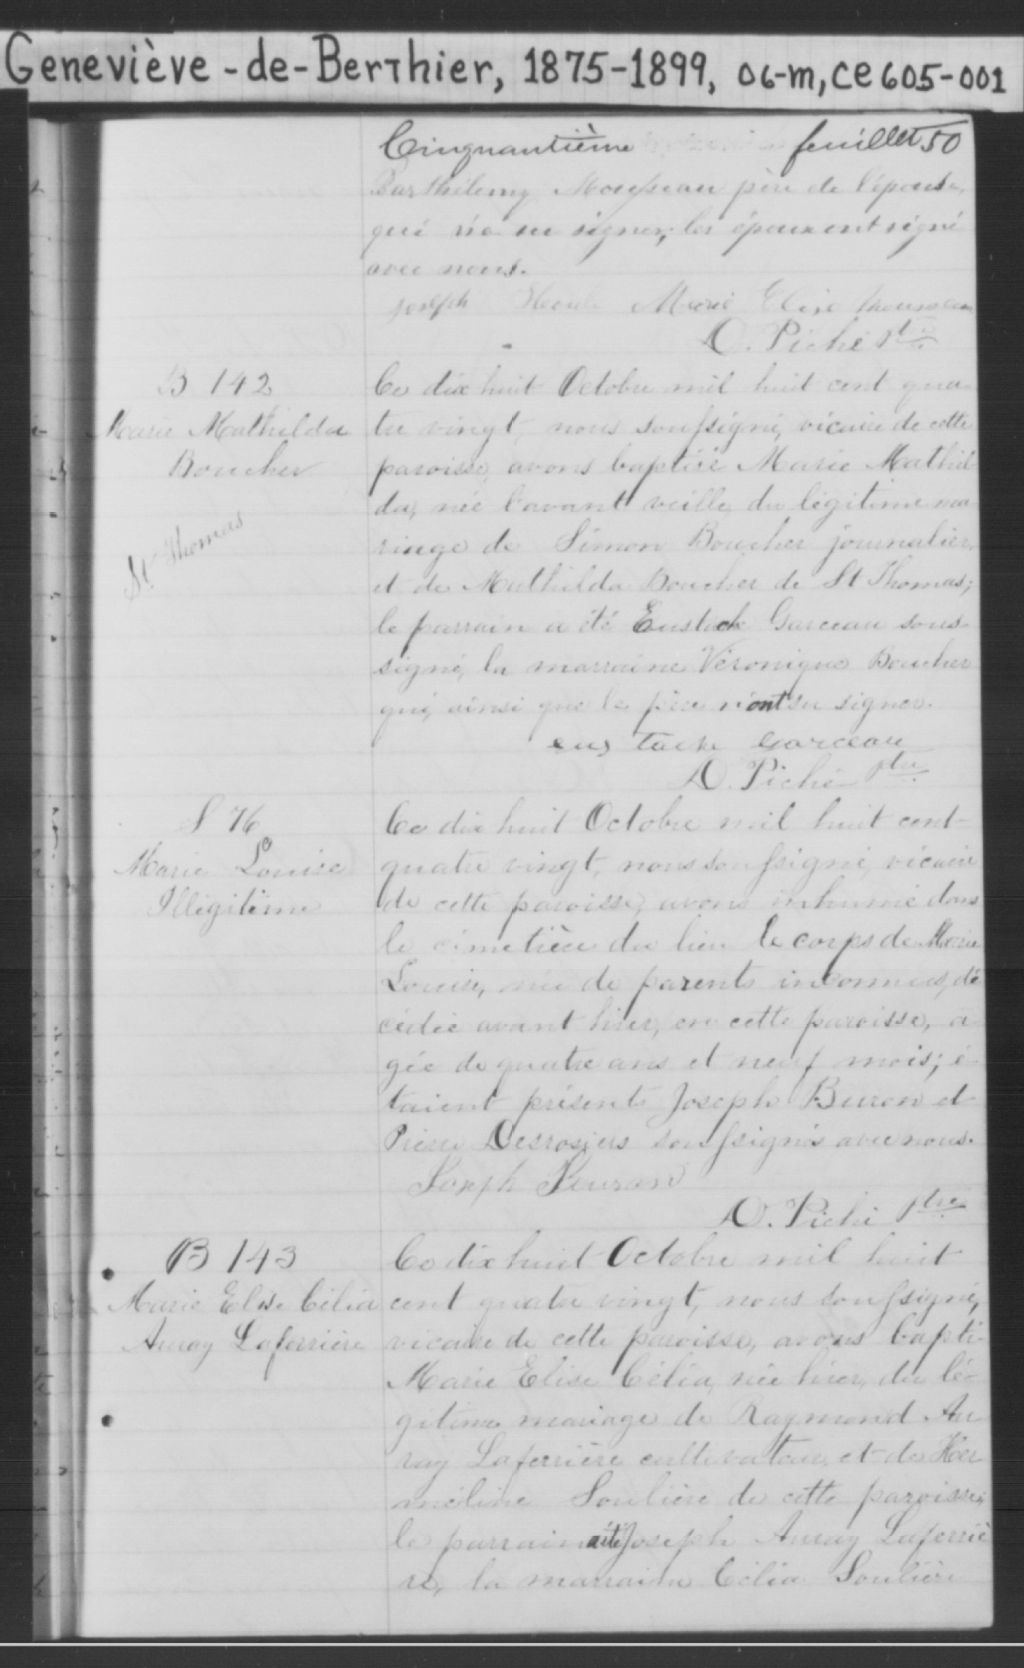 Geneviève-de-Berthier, 1875-1899, 06-m, ce 605-001
Cinquantième feuillet 50
Barthélemy Mousseau père de l'épouse,
qui n'a su signer; les époux ont signé
avec nous.
Joseph Marie Elise Mousseau
D. Piché Ptre
B 142
Marie Mathilda
Boucher
St Thomas
Ce dix huit Octobre mil huit cent qua-
tre vingt, nous soussigné, vicaire de cette
paroisse, avons baptisé Marie Mathil
da, née l'avant veille, du légitime ma-
riage de Simon Boucher journalier,
et de Mathilda Boucher de St Thomas;
le parrain a été Eustache Garceau sous-
signé, la marraine Véronique Boucher
qui, ainsi que le père n'ont su signer.
eus tache Garceau
D. Piché ptre
S 76
Marie Louise
Illégitime
Ce dix huit Octobre mil huit cent
quatre vingt, nous soussigné, vicaire
de cette paroisse, avons inhumé dans
le cimetière du lieu le corps de Marie
Louise, née de parents inconnus, dé
cédée avant hier, en cette paroisse, a-
gée de quatre ans et neuf mois; é-
taient présents Joseph Buron et
Pierre Desrosiers soussignés avec nous.
Joseph Beuron
D. Piché Ptre
B 143
Marie Elise Célia
Auray Laferrière
Ce dix huit Octobre mil huit
cent quatre vingt, nous soussigné,
vicaire de cette paroisse, avons bapti-
Marie Elise Célia, née hier, du lé-
gitime mariage de Raymond Au
ray Laferrière cultivateur, et de Her
méline Soulière de cette paroisse;
le parrain a été Joseph Auray Laferriè
re, la marraine Célia Soulière